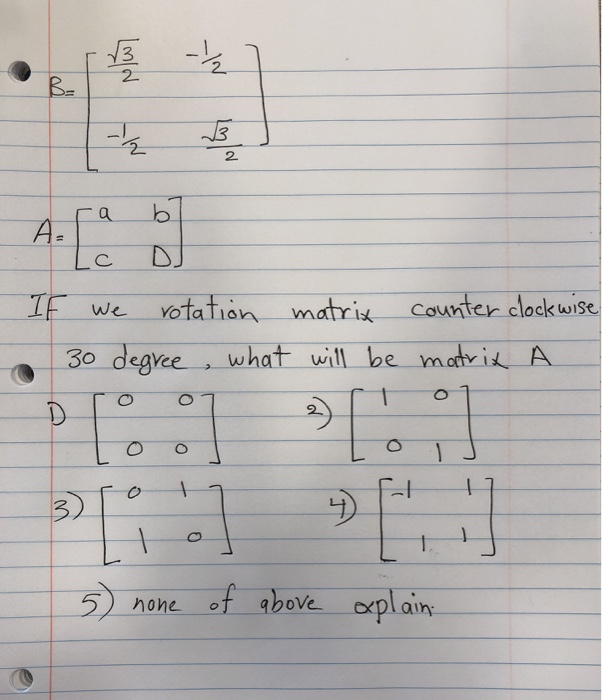 B= [ √3/2 -1/2
-1/2 √3/2 ]
A= [ a b
c D ]
IF we rotation matrix counter clockwise
30 degree, what will be matrix A
1) [ 0 0 2) [ 1 0
0 0 ] 0 1 ]
3) [ 0 1 4) [ -1 1
1 0 ] 1 1 ]
5) none of above explain.